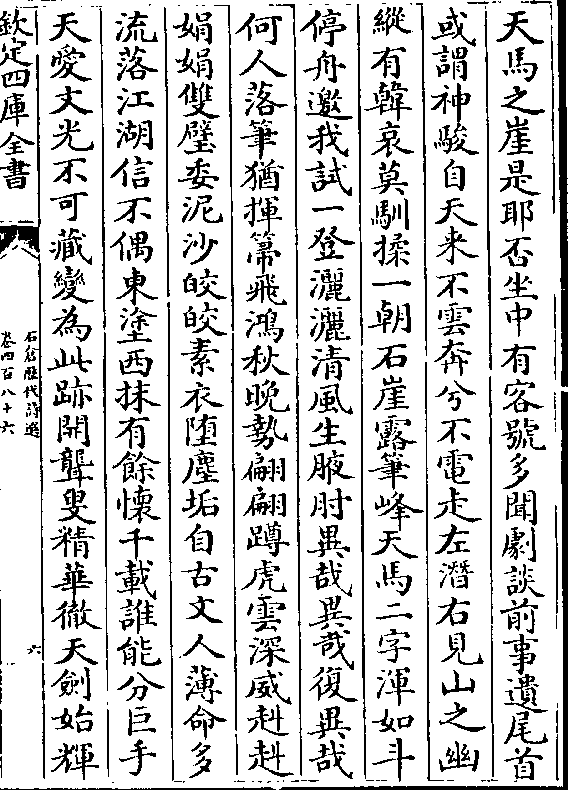 天馬之崖是耶否坐中有客號多聞劇談前事遺尾首
或謂神駿自天來不雲奔兮不電走左潛右見山之幽
縱有韓哀莫馴揉一朝石崖露筆峰天馬二字渾如斗
停舟邀我試一登灑灑清風生腋肘異哉異哉復異哉
何人落筆猶揮箒飛鴻秋晚勢翩翩蹲虎雲深威赳赳
娟娟雙璧委泥沙皎皎素衣堕塵垢自古文人薄命多
流落江湖信不偶東塗西抹有餘懷千載誰能分巨手
天愛文光不可藏變為此跡開聾叟精華徹天劍始輝
欽定四庫全書
石倉歷代詩選
卷四百八十六
六